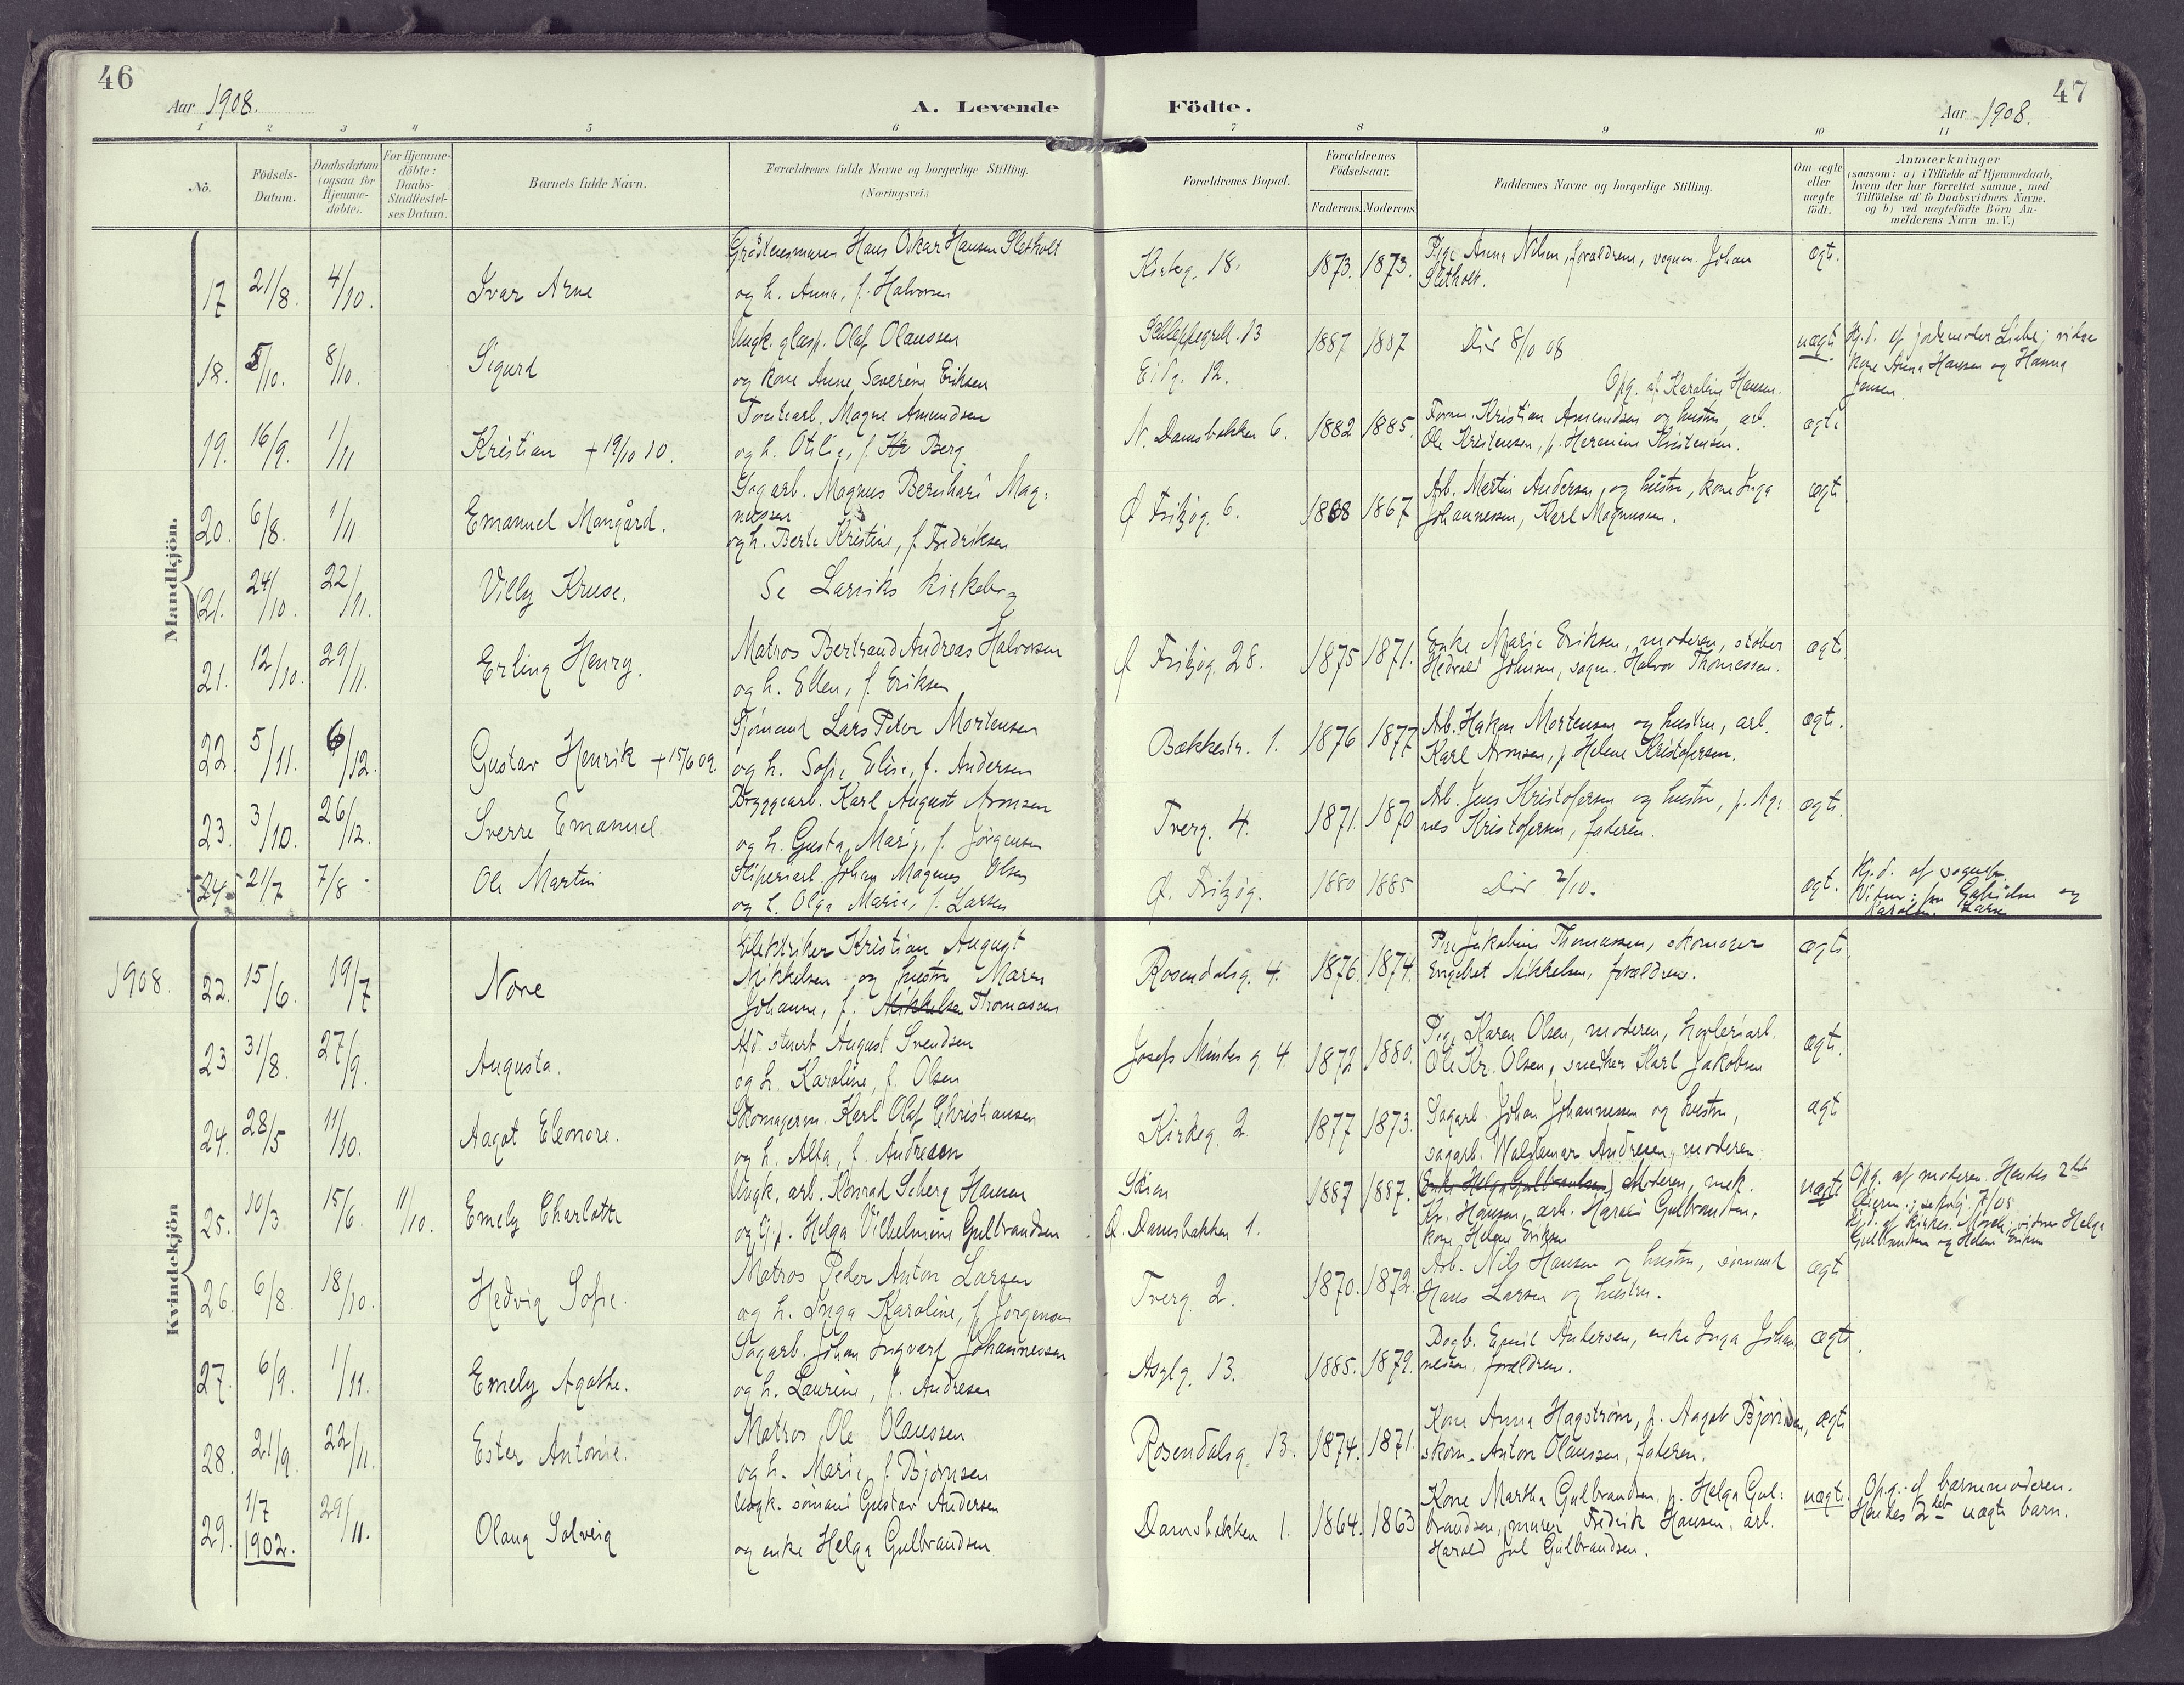 46
Aar 1908.
A. Levende
Födte.
Aar 1908.
47
1 2 3 4 5 6 7 8 9 10 11
Nô.
Födsels-
Datum.
Daabsdatum
(ogsaa for
Hjemme-
döbte).
For Hjemme-
döbte:
Daabs-
Stadfæstel-
ses Datum.
Barnets fulde Navn.
Forældrenes fulde Navne og borgerlige Stilling.
(Næringsvei.)
Forældrenes Bopæl.
Forældrenes
Födselsaar.
Faderens. Moderens.
Faddernes Navne og borgerlige Stilling.
Om ægte
eller
uægte
födt.
Anmærkninger
(saasom: a) i Tilfælde af Hjemmedaab,
hvem der har forrettet samme, med
Tilföielse af to Daabsvidners Navne.
og b) ved uægtefödte Börn An-
melderens Navn m. V.)
Mandkjön.
17 21/8. 4/10. Ivar Arne
Gråstensmurer Hans Oskar Hansen Sletholt
og h. Anna, f. Halvorsen
Kirkeg. 18. 1873. 1873.
Pige Anna Nilsen, forældrene, vognm. Johan
Sletholt.
ægt.
18. 5/10. 8/10. Sigurd
Ungk. glasp. Olaf Olaussen
og kone Anne Severine Eriksen
Schleppegrell. 13
Eidg. 12.
1887 1887
Død 8/10 08
Opg. af Karoline Hansen.
uægt.
Hj.d. af jordemoder Liebe; vidner
kone Anna Hansen og Hanna
Jensen
19. 16/9. 1/11 Kristian + 19/10 10.
Tomtearb. Magne Amundsen
og h. Otilie, f. Berg
N. Damsbakken 6. 1882 1885.
Form. Kristian Amundsen og hustru, arb.
Ole Kristensen, p. Hermine Kristensen.
ægt.
20. 6/8. 1/11 Emanuel Mangård.
Sagarb. Magnus Bernhard Mag-
nussen
og h. Berte Kristine, f. Fredriksen
Ø Fritzøg. 6. 1868 1867
Arb. Martin Andersen og hustru, kone Inga
Johannessen, Karl Magnussen.
ægt
(21. 24/10. 22/11. Villy Kruse.
Se Larviks kirkebog
21. 12/10. 29/11. Erling Henry.
Matros Bertrand Andreas Halvorsen
og h. Ellen, f. Eriksen
Ø Fritzøg. 28. 1875 1871.
Enke Marie Eriksen, moderen, støber
Johansen, sagm. Halvor Thomassen.
ægt
22. 5/11. 6/12. Gustav Henrik + 15/6 09.
Sjømand Lars Peter Mortensen
og h. Sofie Elise, f. Andersen
Bækkestr. 1. 1876 1877
Arb. Hakon Mortensen og hustru, arb.
Karl Aronsen, p. Helene Kristofersen.
ægt.
23. 3/10. 26/12. Sverre Emanuel
Bryggearb. Karl August Aronsen
og h. Gusta Marie, f. Jörgensen
Tverg. 4. 1871. 1870
Arb. Jens Kristofersen og hustru, p. Ag-
nes Kristofersen, faderen.
ægt.
24. 21/7 7/8 Ole Martin
Sliperiarb. Johan Magnus Olsen
og h. Olga Marie, f. Larsen
Ø. Fritzøg. 1880 1885
Død 2/10.
ægt.
Hj.d. af sognepr.
Vidner: fru Gabrielsen og
Karoline Larsen
Kvindekjön
1908.
22. 15/6. 19/7 Nore
Elektriker Kristian August
Mikkelsen og hustru Maren
Johanne, f. Mikkelsen Thomassen
Rosendalsg. 4. 1876. 1874.
Pige Jakobine Thomassen, skomager
Engebret Mikkelsen, forældrene.
ægt.
23 31/8. 27/9. Augusta.
Afd. stuert August Svendsen
og h. Karoline, f. Olsen
Josefs Mindes g. 4. 1872 1880.
Pige Karen Olsen, moderen, høvleriarb.
Ole Kr. Olsen, snedker Karl Jakobsen
ægt.
24. 28/5 11/10. Aagot Eleonore.
Skomagerm. Karl Olaf Christiansen
og h. Alfa, f. Andresen
Kirkeg. 2. 1877 1873.
Sagarb. Johan Johannessen og hustru,
sagarb. Waldemar Andresen, moderen
ægt
25. 10/3 15/6. 11/10. Emely Charlotte
Ungk. arb. Konrad Scherg Hansen
og Gjp. Helga Vilhelmine Gulbrandsen
Skien
Ø. Damsbakken 1.
1887 1887.
Enke Helga Gulbrandsen, Moderen, mek.
Kr. Hansen, arb. Harald Gulbrandsen,
kone Helene Eriksen
uægt
Opg. af moderen. Hendes 2det
Hj.d. af kirkes. Moe; vidner Helga
Gulbrandsen og Helene Eriksen
26. 6/8. 18/10. Hedvig Sofie.
Matros Peder Anton Larsen
og h. Inga Karoline, f. Jørgensen
Tverg. 2. 1870. 1872.
Arb. Nils Hansen og hustru, sømand
Hans Larsen og hustru.
ægt
27. 6/9. 1/11. Emely Agathe.
Sagarb. Johan Ingvart Johannessen
og h. Laurine, f. Andresen
Asylg. 13. 1885. 1879.
Dagb. Emil Andersen, enke Inga Johan-
nessen, forældrene.
ægt.
28. 21/9. 22/11. Ester Antonie.
Matros Ole Olaussen
og h. Marie, f. Bjørnsen
Rosendalsg. 13. 1874. 1871.
Kone Anna Hagstrøm, p. Aagot Bjørnsen,
skom. Anton Olaussen, faderen.
ægt.
29. 1/7 1902. 29/11. Olaug Solveig
Ungk. sömand Gustav Andersen
og enke Helga Gulbrandsen
Damsbakken 1. 1864. 1863
Kone Martha Gulbrandsen, p. Helga Gul-
brandsen, murer Fredrik Hansen, arb.
Harald Jul Gulbrandsen.
uægt.
Opg. af barnemoderen.
Hendes 2det uægte barn.